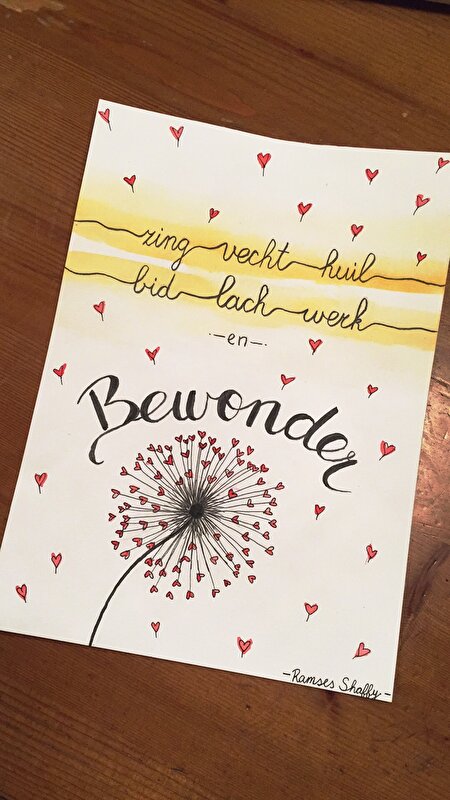 zing vecht huil
bid lach werk
-en-
Bewonder
-Ramses Shaffy-